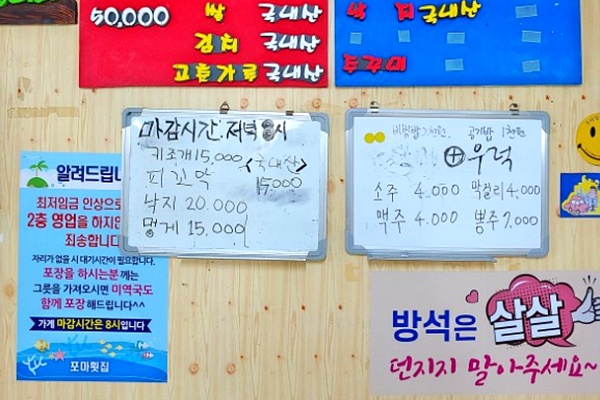 50,000
쌀 국내산
김치 국내산
고춧가루 국내산
쌀 국내산
마감시간 저녁 8시
키조개 15,000 <국내산>
피꼬막 15,000
낙지 20.000
멍게 15.000
비빔밥 2천원. 공기밥 1천원
⊕우럭
소주 4.000 막걸리 4,000
맥주 4.000 뽕주 7.000
알려드립니
최저임금 인상으로
2층 영업을 하지않
죄송합니다
자리가 없을 시 대기시간이 필요합니다.
포장을 하시는분께는
그릇을 가져오시면 미역국도
함께 포장해드립니다^^
가게 마감시간은 8시입니다
포마횟집
방석은 살살
던지지 말아주세요~